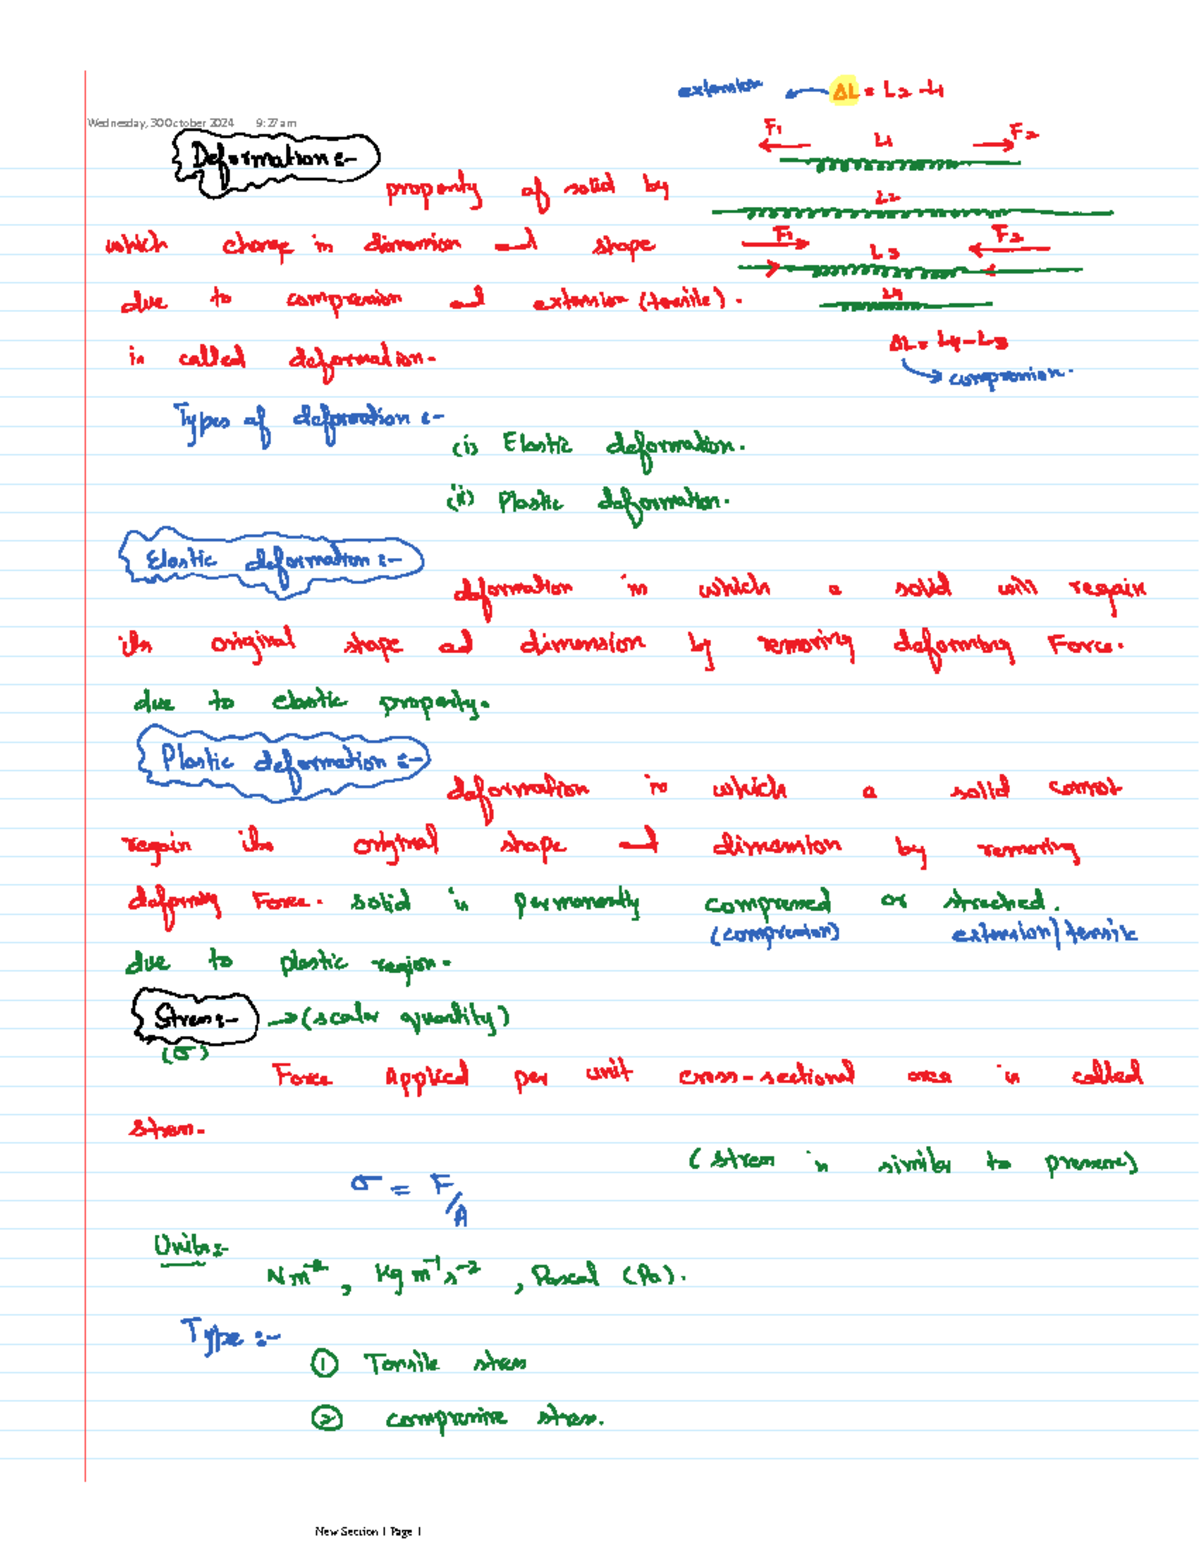 extension ← ΔL = L2 - L1
Wednesday, 30 October 2024 9:27 am
F1 L1 F2
Deformation :-
property of solid by
L2
which change in dimension and shape
F1 L3 F2
due to compression and extension (tensile).
L4
ΔL = L4 - L3
is called deformation.
→ compression.
Types of deformation :-
(i) Elastic deformation.
(ii) Plastic deformation.
Elastic deformation :-
deformation in which a solid will regain
its original shape and dimension by removing deforming Force.
due to elastic property.
Plastic deformation :-
deformation in which a solid cannot
regain its original shape and dimension by removing
deforming Force. solid is permanently compressed or streched.
(compression) extension/tensile
due to plastic region.
Stress :- → (scalar quantity)
(σ)
Force Applied per unit cross-sectional area is called
stress.
(stress is similar to pressure)
σ = F/A
Units :-
Nm⁻², Kg m⁻¹ s⁻², Pascal (Pa).
Type :-
① Tensile stress
② compressive stress.
New Section 1 Page 1